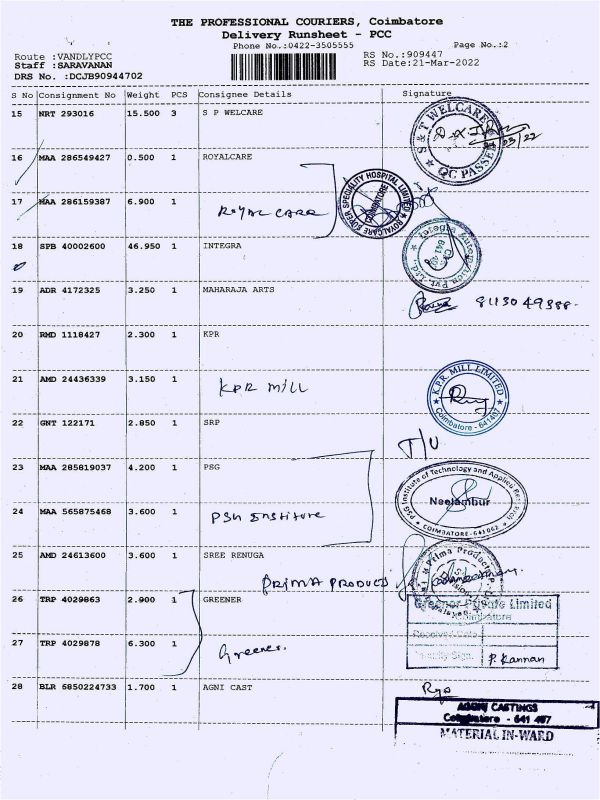 THE PROFESSIONAL COURIERS, Coimbatore
Delivery Runsheet - PCC
Phone No.:0422-3505555
Page No.:2
Route :VANDLYPCC
Staff :SARAVANAN
DRS No. :DCJB90944702
RS No.:909447
RS Date:21-Mar-2022
S No Consignment No Weight PCS Consignee Details Signature
15 NRT 293016 15.500 3 S P WELCARE
S & T WELCARE
QC PASSED
16 MAA 286549427 0.500 1 ROYALCARE
17 MAA 286159387 6.900 1
ROYAL CARE
ROYALCARE SUPER SPECIALITY HOSPITAL LIMITED
COIMBATORE
18 SPB 40002600 46.950 1 INTEGRA
Integra Automation Pvt. Ltd.
641 407
19 ADR 4172325 3.250 1 MAHARAJA ARTS
8113049388
20 RMD 1118427 2.300 1 KPR
21 AMD 24436339 3.150 1
KPR MILL
K.P.R. MILL LIMITED
Coimbatore - 641407
22 GNT 122171 2.850 1 SRP
T/U
23 MAA 285819037 4.200 1 PSG
24 MAA 565875468 3.600 1
PSG Institute
PSG Institute of Technology and Applied Research
Neelambur
COIMBATORE-641062
25 AMD 24613600 3.600 1 SREE RENUGA
PRIMA PRODUCT
Prima Products
26 TRP 4029863 2.900 1 GREENER
27 TRP 4029878 6.300 1
Greener.
Private Limited
Coimbatore
Received Date
Sign.
P. Kannan
28 BLR 6850224733 1.700 1 AGNI CAST
AGNI CASTINGS
Coimbatore - 641 407
MATERIAL IN-WARD